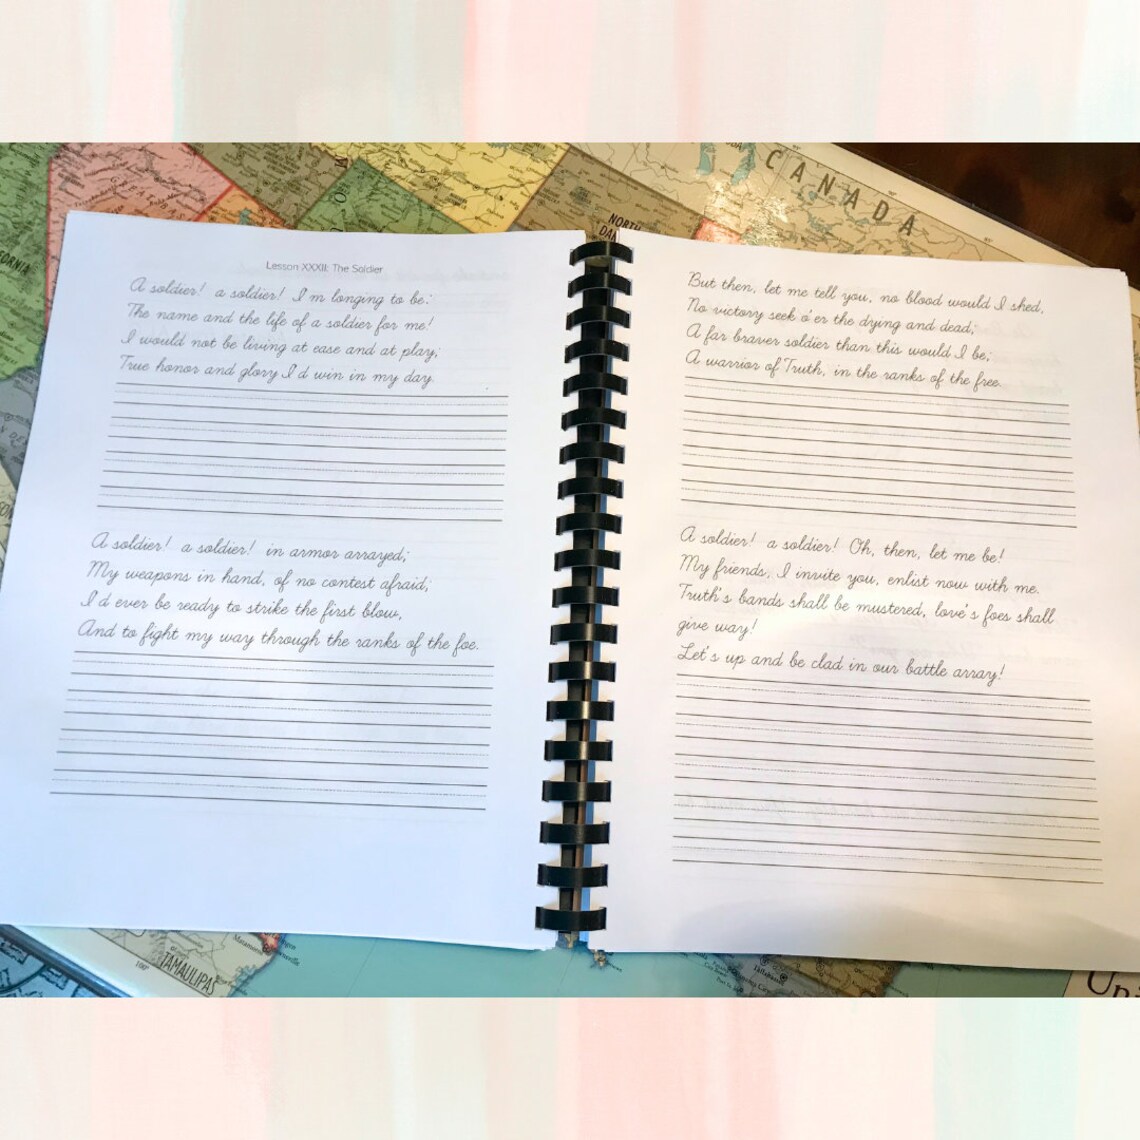 Lesson XXXII: The Soldier
A soldier! a soldier! I'm longing to be;
The name and the life of a soldier for me!
I would not be living at ease and at play;
True honor and glory I'd win in my day.
A soldier! a soldier! in armor arrayed;
My weapons in hand, of no contest afraid;
I'd ever be ready to strike the first blow,
And to fight my way through the ranks of the foe.
But then, let me tell you, no blood would I shed,
No victory seek o'er the dying and dead;
A far braver soldier than this would I be;
A warrior of Truth, in the ranks of the free.
A soldier! a soldier! Oh, then, let me be!
My friends, I invite you, enlist now with me.
Truth's bands shall be mustered, love's foes shall
give way!
Let's up and be clad in our battle array!
CANADA
NORTH
GREAT BAS
TAMAULIPAS